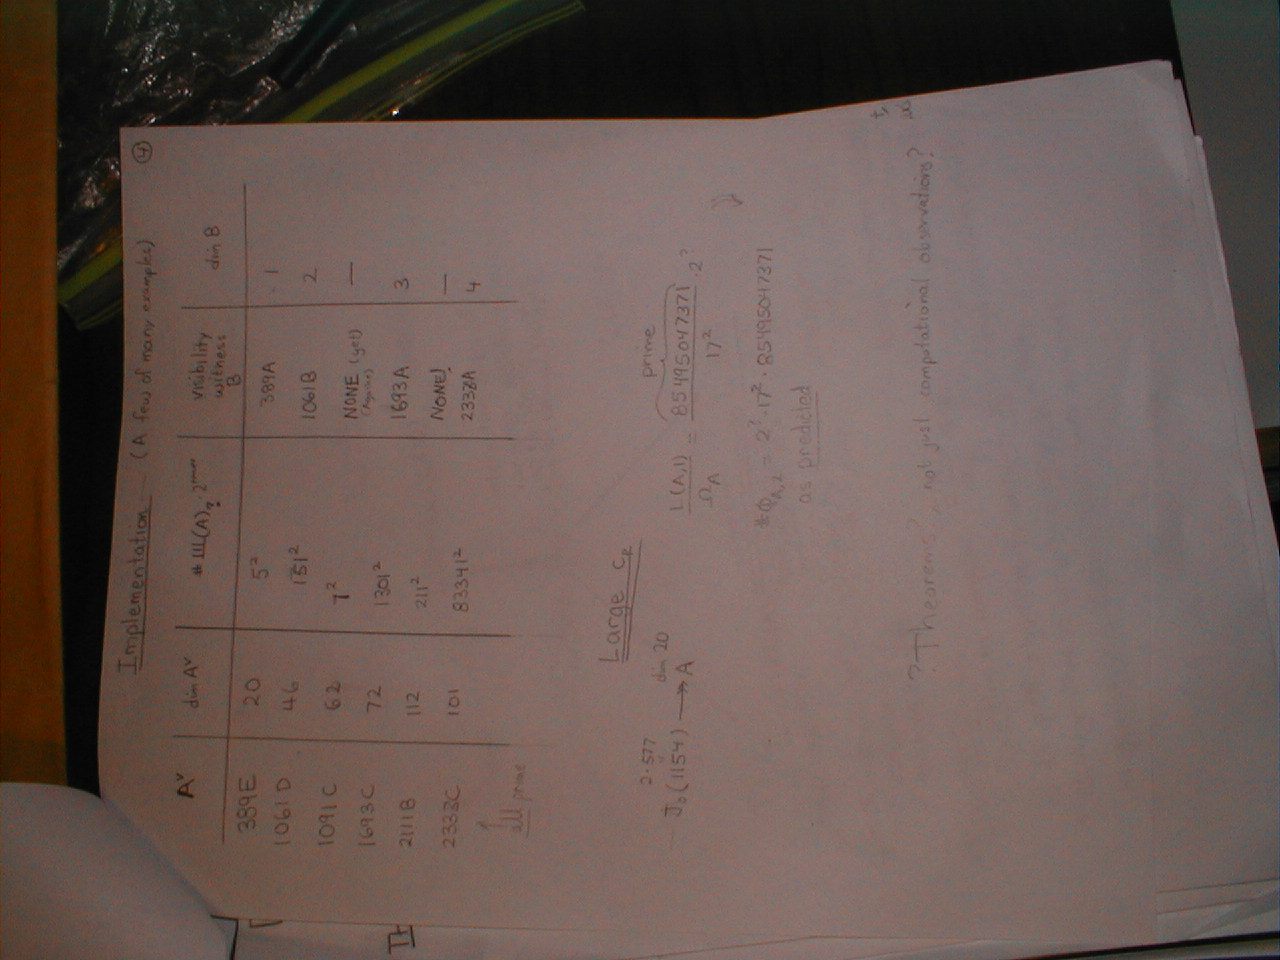 ④
Implementation - (A few of many examples)
A^v dim A^v #Ш(A)? · 2^ visibility witness B dim B
389E 20 5² 389A 1
1061D 46 151² 1061B 2
1091C 62 7² NONE (yet) —
1693C 72 1301² 1693A 3
2111B 112 211² NONE! —
2333C 101 83341² 2333A 4
↑
all prime
Large c_p
2·577 dim 20 prime
J₀(1154) ↠ A L(A,1)/Ω_A = 85495047371/17² · 2^?
#Φ_A,2 = 2^? · 17² · 85495047371
as predicted
? Theorems?, not just computational observations?